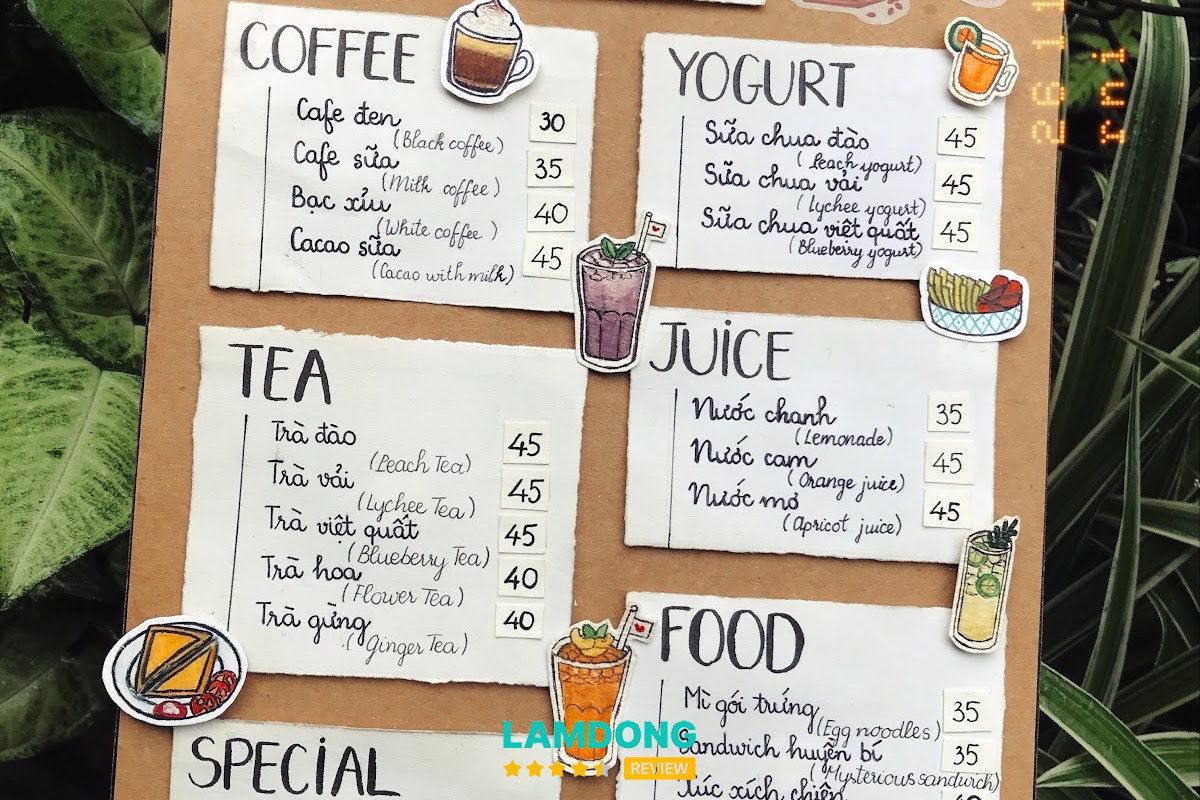 COFFEE
Cafe đen 30
(Black coffee)
Cafe sữa 35
(Milk coffee)
Bạc xỉu 40
(White coffee)
Cacao sữa 45
(Cacao with milk)
YOGURT
Sữa chua đào 45
(Peach yogurt)
Sữa chua vải 45
(Lychee yogurt)
Sữa chua việt quất 45
(Blueberry yogurt)
TEA
Trà đào 45
(Peach Tea)
Trà vải 45
(Lychee Tea)
Trà việt quất 45
(Blueberry Tea)
Trà hoa 40
(Flower Tea)
Trà gừng 40
(Ginger Tea)
JUiCE
Nước chanh 35
(Lemonade)
Nước cam 45
(Orange juice)
Nước mơ 45
(Apricot juice)
FOOD
Mì gói trứng 35
(Egg noodles)
Sandwich huyền bí 35
(Mysterious sandwich)
Xúc xích chiên
SPECiAL
LAMDONG
REVIEW